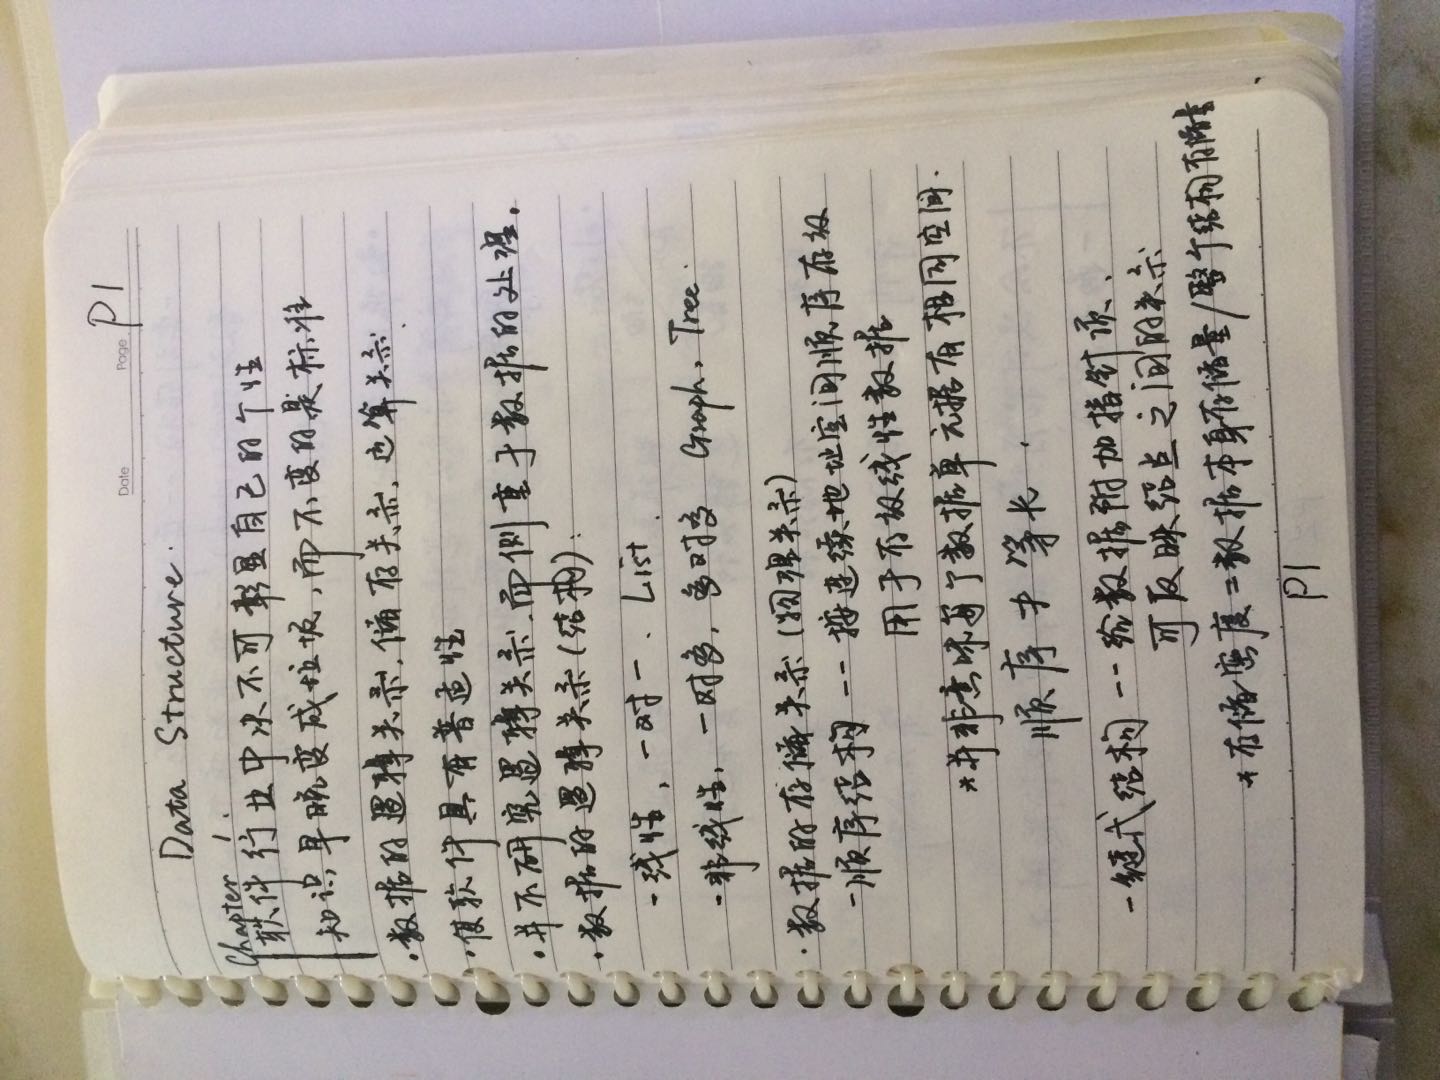 Date Page P1
Data Structure.
Chapter 1.
软件行业中决不可彰显自己的个性
知识早晚变成垃圾,而不变的是标准
·数据的逻辑关系,储存关系,运算关系.
·使软件具有普适性
·并不研究逻辑关系,而侧重于数据的处理。
·数据的逻辑关系(结构):
-线性,一对一. List.
-非线性,一对多,多对多 Graph, Tree.
·数据的存储关系(物理关系)
-顺序结构 -- 按连续地址空间顺序存放
用于存放线性数据
*并非意味每个数据单元据有相同空间.
顺序≠等长.
-链式结构 -- 给数据附加指针项,
可反映结点之间的关系
*存储密度=数据本身存储量/整个结构存储量
P1